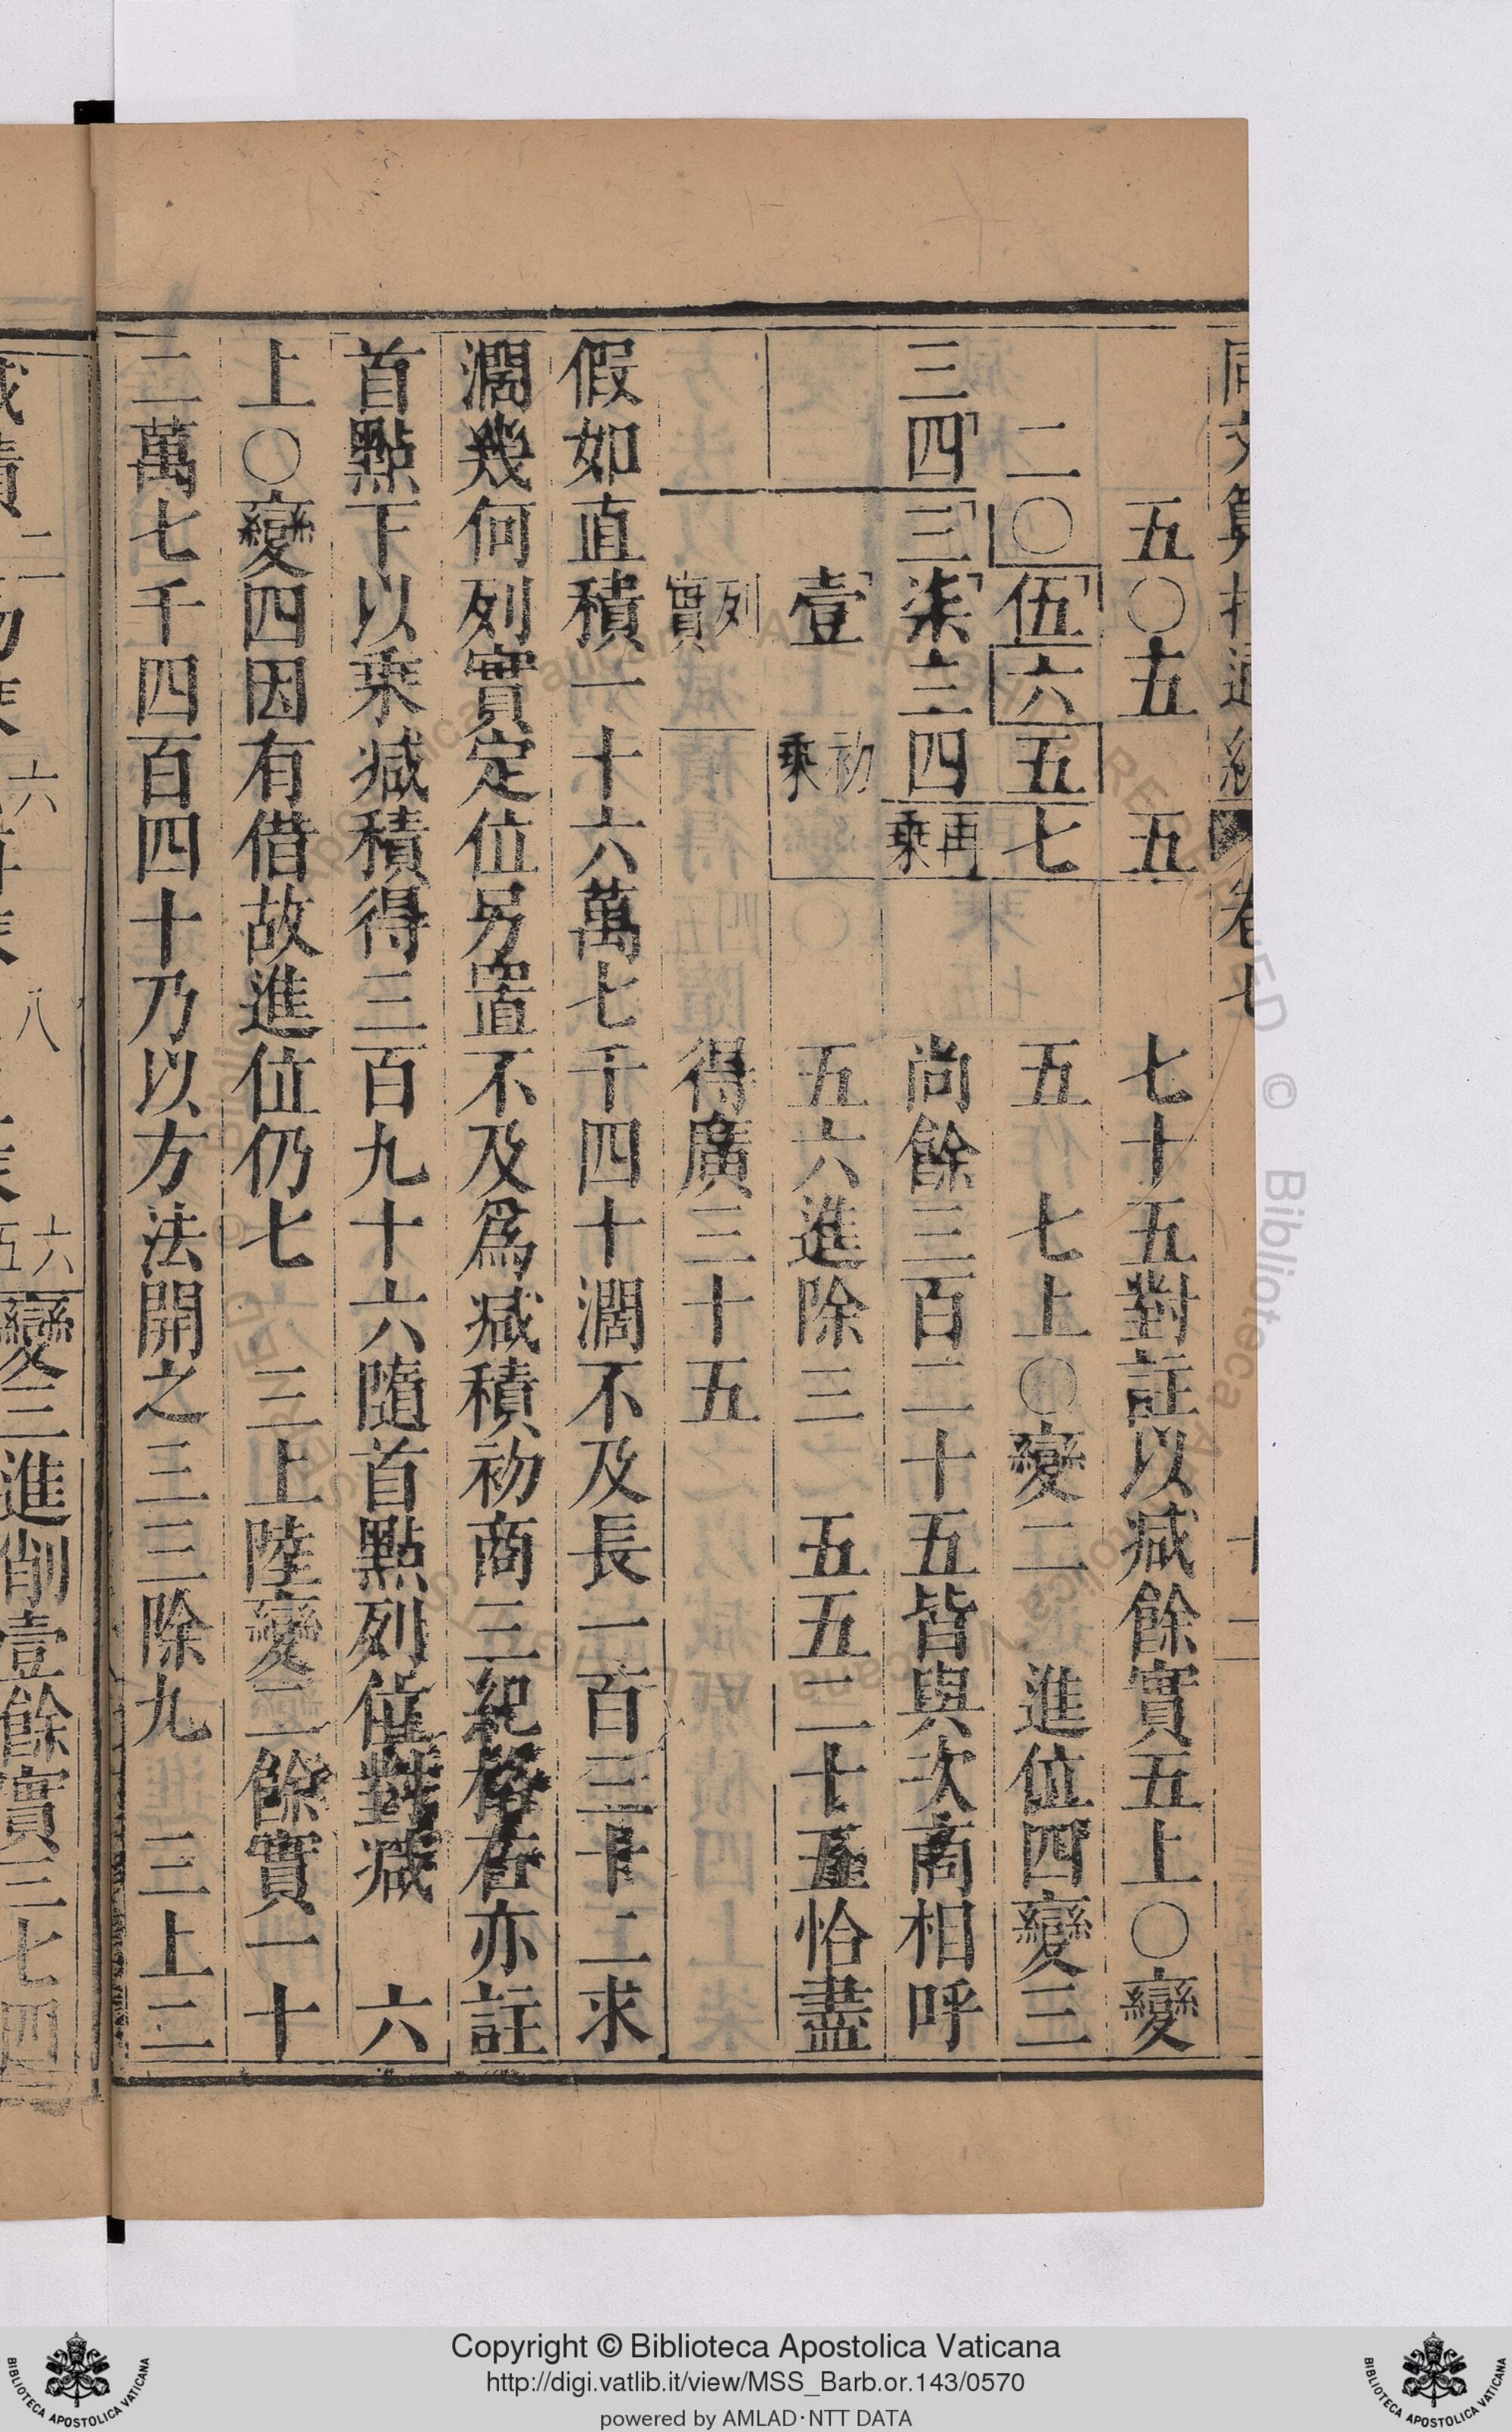 五〇五 五 七十五對註以減餘實五上〇變
二〇伍六五七 五 七上〇變二 進位四變三
三四三柒三四 再乘 尚餘三百二十五皆與次商相呼
壹 初乘 五六進除三 五五二十五恰盡
列實 得廣三十五
假如直積一十六萬七千四十濶不及長一百三十二求
濶幾何列實定位另置不及為减積初商三紀格右亦註
首點下以乘减積得三百九十六隨首點列位對减 六
上〇變四因有借故進位仍七 三上陸變二餘實一十
二萬七千四百四十乃以方法開之三三除九 三上二
變三進削壹餘實三七四
Copyright © Biblioteca Apostolica Vaticana
http://digi.vatlib.it/view/MSS_Barb.or.143/0570
powered by AMLAD·NTT DATA
BIBLIOTECA APOSTOLICA VATICANA
BIBLIOTECA APOSTOLICA VATICANA